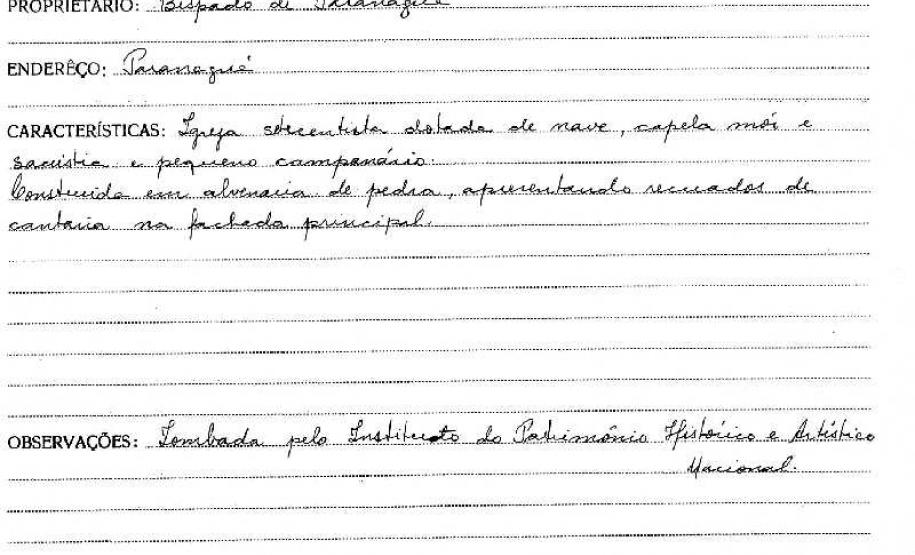 PROPRIETÁRIO: Bispado de Paranaguá
ENDERÊÇO: Paranaguá
CARACTERÍSTICAS: Igreja setecentista dotada de nave, capela mór e
sacristia e pequeno campanário.
Construida em alvenaria de pedra, apresentando recuados de
cantaria na fachada principal.
OBSERVAÇÕES: Tombada pelo Instituto do Patrimônio Histórico e Artístico
Nacional.